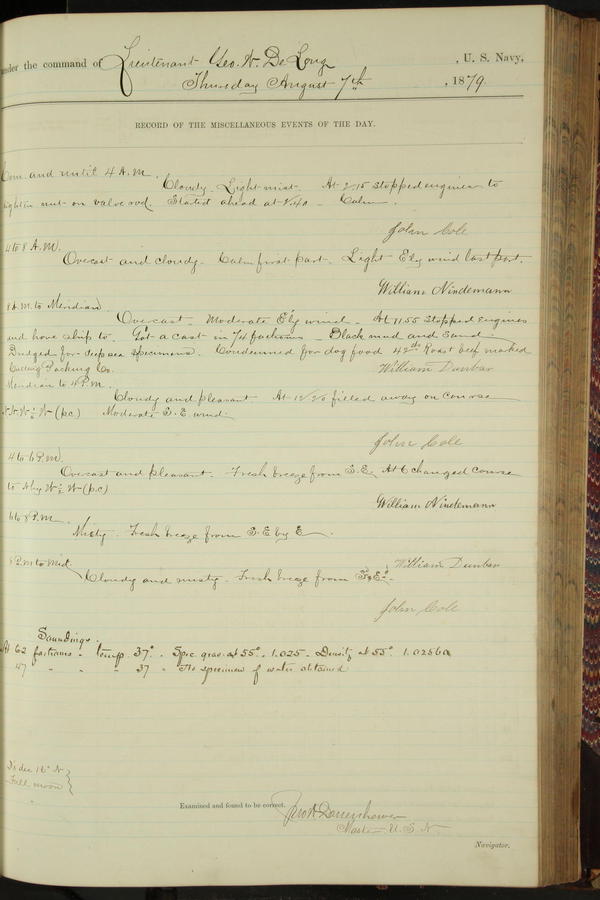 under the command of Lieutenant Geo. W. De Long, U. S. Navy,
Thursday August 7th, 1879.
RECORD OF THE MISCELLANEOUS EVENTS OF THE DAY.
Com. and until 4 A.M.
Cloudy. Light mist. At 2.15 stopped engines to
tighten nut on valve rod. Started ahead at 2.40 - Calm.
John Cole
4 to 8 A.M.
Overcast and cloudy. Calm first part. Light Ely wind last part.
William Nindemann
8 A.M. to Meridian.
Overcast. Moderate Ely wind. At 11.55 stopped engines
and hove ship to. Got a cast in 74 fathoms - Black mud and sand.
Dredged for deep sea specimens. Condemned for dog food 42 lbs Roast beef marked
Packing Co.
William Dunbar
Meridian to 4 P.M.
Cloudy and pleasant. At 12.20 filled away on course
N.W. ½ W (p.c) Moderate S.E wind.
John Cole
4 to 6 P.M.
Overcast and pleasant. Fresh breeze from S.E. At 6 changed course
to N by W ½ W (p.c)
William Nindemann
6 to 8 P.M.
Misty. Fresh breeze from S.E by E.
William Dunbar
8 P.M to Mid.
Cloudy and misty. Fresh breeze from S.E.
John Cole
Soundings.
At 62 fathoms - temp. 37° - Spec. grav. at 55° - 1.025 - Density at 55° 1.02560
47 " " " 37 - No specimen of water obtained
D's dec 16° N
Full moon
Examined and found to be correct.
Jno W Danenhower
Master U.S.N.
Navigator.